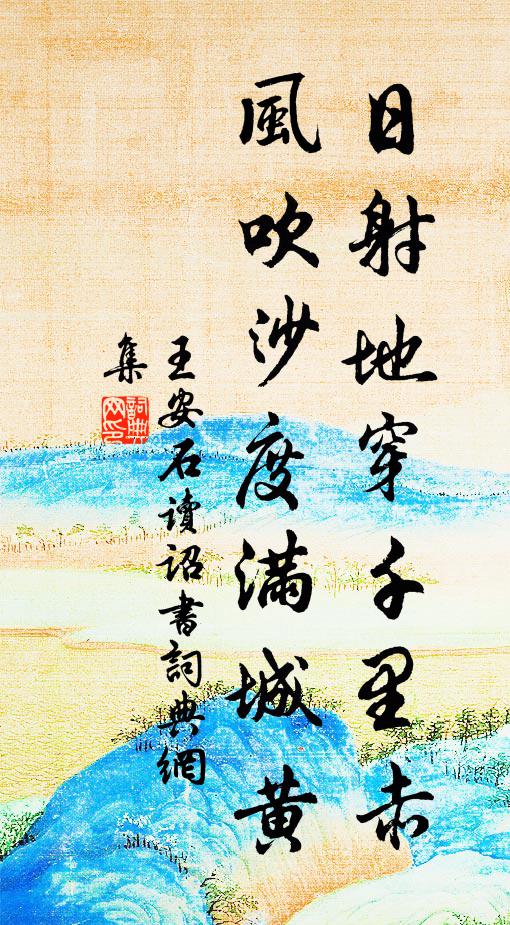 日射地穿千里赤
風吹沙度滿城黃
王安石讀詔書詞典網
集
詞典網印